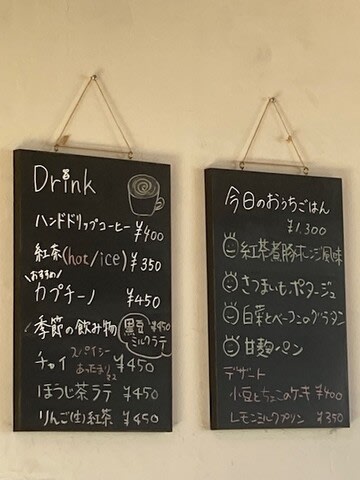 Drink
ハンドドリップコーヒー ¥400
紅茶(hot/ice) ¥350
おすすめ!
カプチーノ ¥450
季節の飲み物 黒豆ミルクラテ ¥450
チャイ スパイシー ¥450
ほうじ茶ラテ ¥450
りんご(生)紅茶 ¥450
今日のおうちごはん
¥1,300
紅茶煮豚オレンジ風味
さつまいもポタージュ
白菜とベーコンのグラタン
甘麹パン
デザート
小豆とちょこのケーキ ¥400
レモンミルクプリン ¥350